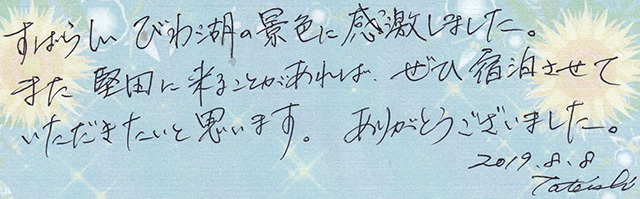 すばらしい びわ湖の景色に感激しました。
また 堅田に来ることがあれば、ぜひ宿泊させて
いただきたいと思います。 ありがとうございました。
2019.8.8
Tateishi